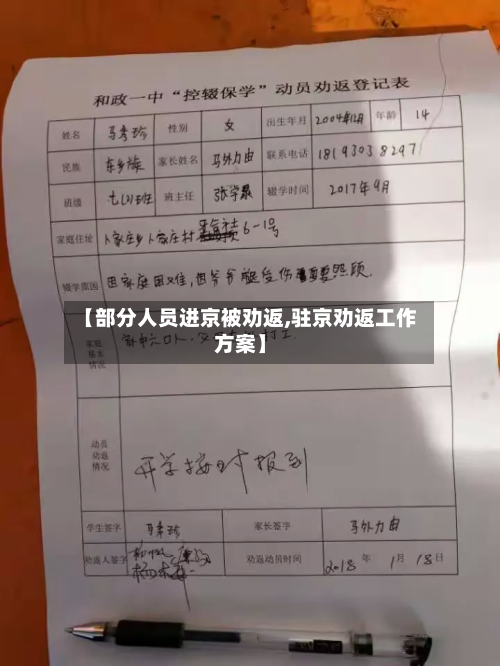 和政一中“控辍保学”动员劝返登记表
姓名 马秀珍 性别 女 出生年月 2004年12月 年龄 14
民族 东乡族 家长姓名 马外力由 联系电话 18193038297
班级 七(2)班 班主任 张学晨 辍学时间 2017年9月
家庭住址 卜家庄乡卜家庄村 6-1号
辍学原因 因家庭困难,因爷爷腿受伤 需要照顾.
【部分人员进京被劝返,驻京劝返工作
方案】
家庭
基本
情况
家中六口人,
动员
劝返
情况
开学按时报到
学生签字 马秀珍 家长签字 马外力由
劝返人签字 劝返动员时间 2018年1月18日